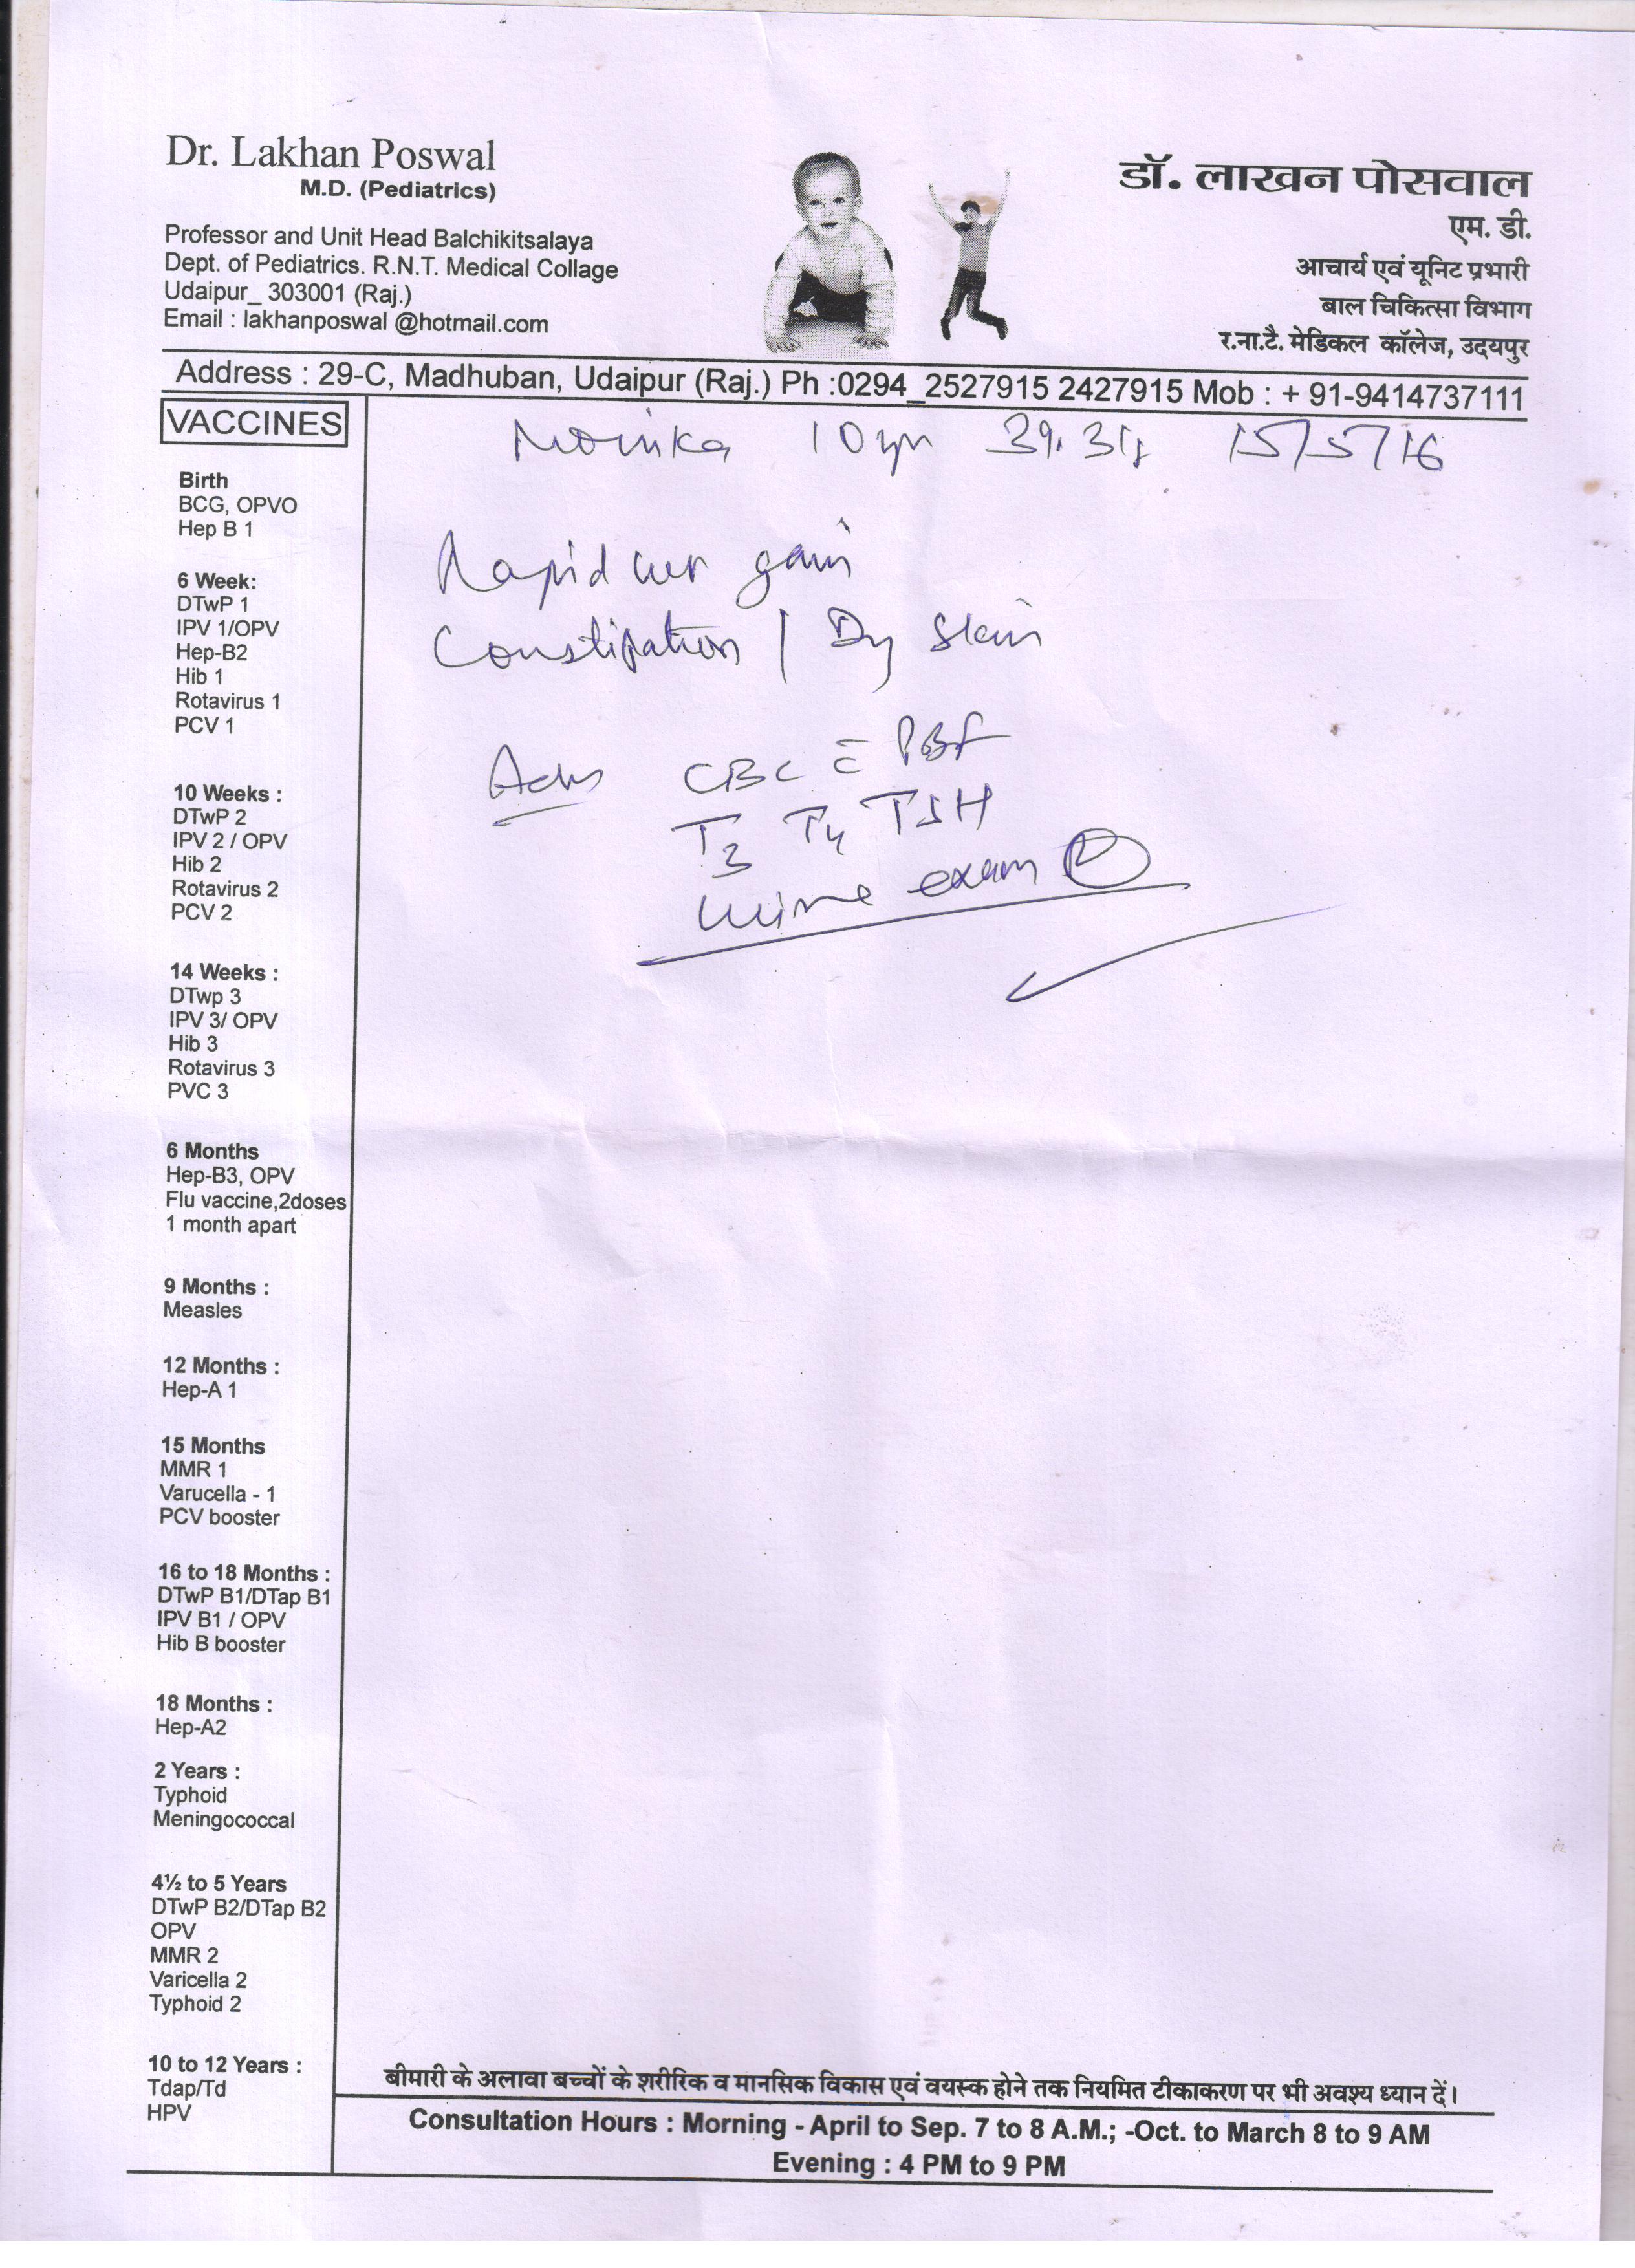 Dr. Lakhan Poswal
M.D. (Pediatrics)
Professor and Unit Head Balchikitsalaya
Dept. of Pediatrics. R.N.T. Medical Collage
Udaipur_ 303001 (Raj.)
Email : lakhanposwal @hotmail.com
डॉ. लाखन पोसवाल
एम. डी.
आचार्य एवं यूनिट प्रभारी
बाल चिकित्सा विभाग
र.ना.टै. मेडिकल कॉलेज, उदयपुर
Address : 29-C, Madhuban, Udaipur (Raj.) Ph :0294_2527915 2427915 Mob : + 91-9414737111
VACCINES
Birth
BCG, OPVO
Hep B 1
6 Week:
DTwP 1
IPV 1/OPV
Hep-B2
Hib 1
Rotavirus 1
PCV 1
10 Weeks :
DTwP 2
IPV 2 / OPV
Hib 2
Rotavirus 2
PCV 2
14 Weeks :
DTwp 3
IPV 3/ OPV
Hib 3
Rotavirus 3
PVC 3
6 Months
Hep-B3, OPV
Flu vaccine,2doses
1 month apart
9 Months :
Measles
12 Months :
Hep-A 1
15 Months
MMR 1
Varucella - 1
PCV booster
16 to 18 Months :
DTwP B1/DTap B1
IPV B1 / OPV
Hib B booster
18 Months :
Hep-A2
2 Years :
Typhoid
Meningococcal
4½ to 5 Years
DTwP B2/DTap B2
OPV
MMR 2
Varicella 2
Typhoid 2
10 to 12 Years :
Tdap/Td
HPV
10 yr 15/5/16
Rapid wt gain
Constipation / Dry skin
Adv CBC c̄ PBF
T3 T4 TSH
urine exam
बीमारी के अलावा बच्चों के शरीरिक व मानसिक विकास एवं वयस्क होने तक नियमित टीकाकरण पर भी अवश्य ध्यान दें।
Consultation Hours : Morning - April to Sep. 7 to 8 A.M.; -Oct. to March 8 to 9 AM
Evening : 4 PM to 9 PM